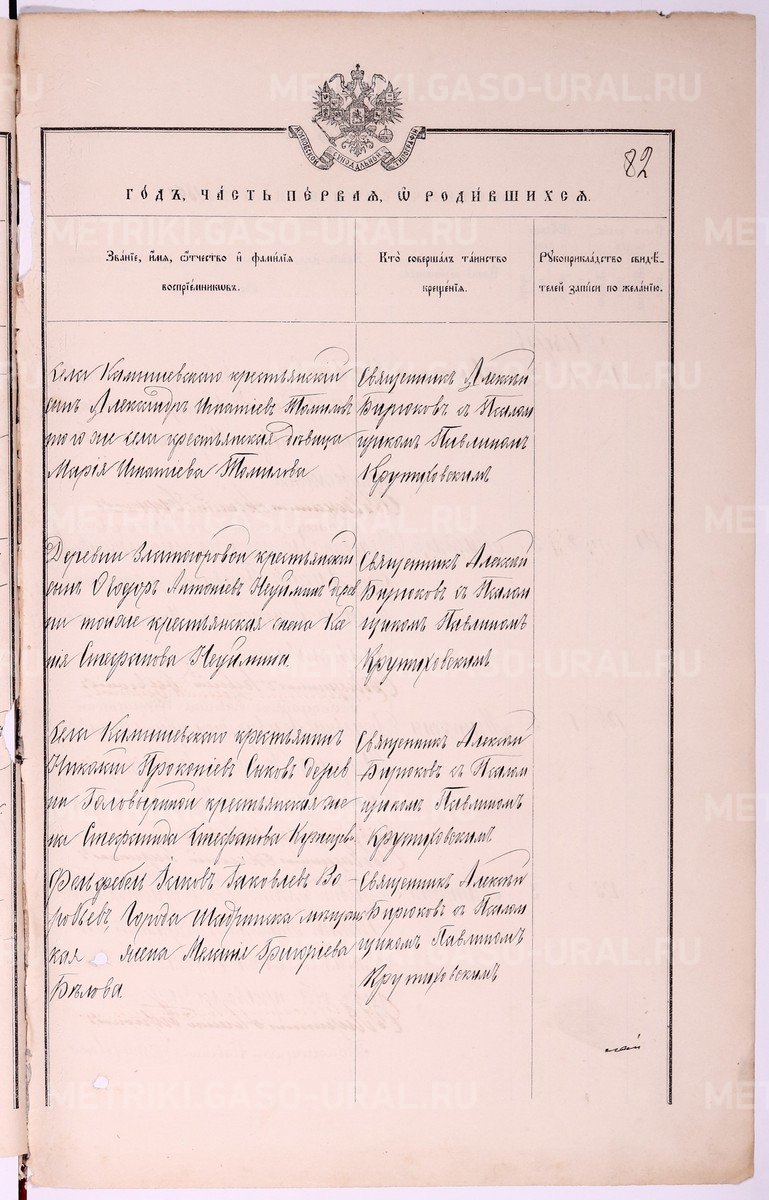 METRIKI.GASO-URAL.RU
МОСКОВСКОЙ СѴНОДАЛЬНОЙ ТИПОГРАФІИ
82
ГО́ДЪ, ЧА́СТЬ ПЕ́РВАЯ, Ѡ РОДИ́ВШИХСЯ.
Зва́нїе, и҆́мя, ѻ҆́тчество и҆ фами́лїя
воспрїе́мникѡвъ.
Кто̀ соверша́лъ та́инство
креще́нїя.
Рꙋкоприкла́дство свидѣ́-
телей за́писи по жела́нїю.
Села Камышевскаго крестьянскій
сынъ Александръ Игнатіевъ Томиловъ
того же села крестьянская дѣвица
Марія Игнатіева Томилова
Священникъ Алексѣй
Бирюковъ съ Псалом
щикомъ Павлиномъ
Крутиховскимъ
Деревни Златогоровой крестьянскій
сынъ Ѳеодоръ Антоніевъ Неуйминъ дерев
ни тойже крестьянская жена
Стефанова Неуймина.
Священникъ Алексѣй
Бирюковъ съ Псалом
щикомъ Павлиномъ
Крутиховскимъ
Села Камышевскаго крестьянинъ
Прокопіевъ Сысковъ дерев
ни Головыриной крестьянская же
на Стефанида Стефанова
Священникъ Алексѣй
Бирюковъ съ Псалом
щикомъ Павлиномъ
Крутиховскимъ
Фельдфебель Іаковъ Іаковлевъ Во-
робьевъ, Города Шадринска мѣщанс
кая жена Григоріева
Бѣлова.
Священникъ Алексѣй
Бирюковъ съ Псалом
щикомъ Павлиномъ
Крутиховскимъ